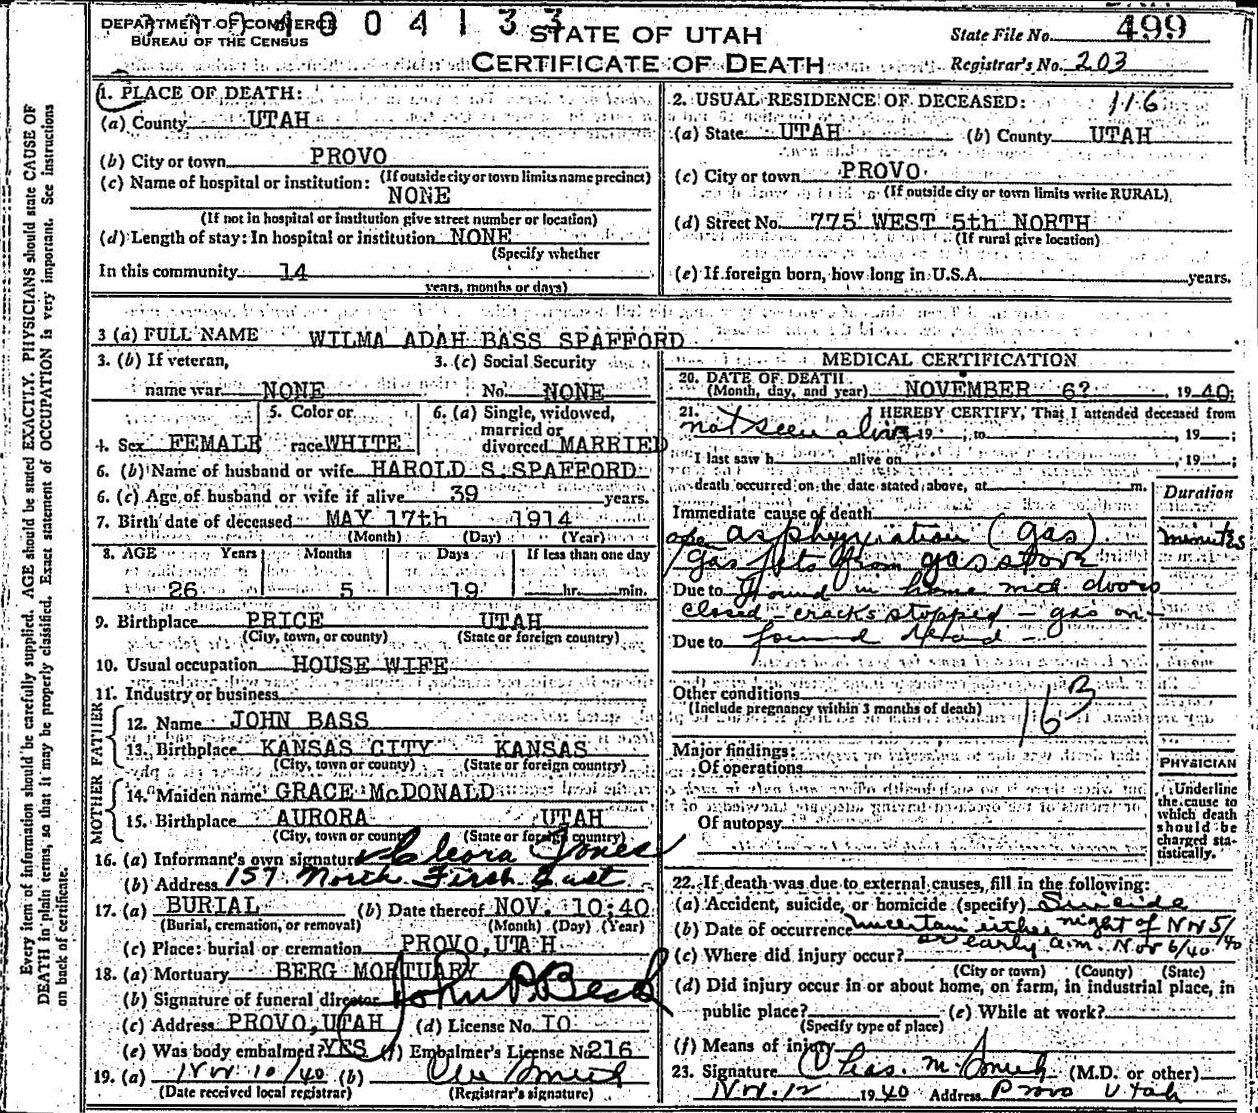 DEPARTMENT OF COMMERCE
BUREAU OF THE CENSUS
0 0 4 1 3 3
STATE OF UTAH
CERTIFICATE OF DEATH
State File No. 499
Registrar's No. 203
Every item of information should be carefully supplied. AGE should be stated EXACTLY. PHYSICIANS should state CAUSE OF
DEATH in plain terms, so that it may be properly classified. Exact statement of OCCUPATION is very important. See instructions
on back of certificate.
1. PLACE OF DEATH:
(a) County UTAH
(b) City or town PROVO
(If outside city or town limits name precinct)
(c) Name of hospital or institution:
NONE
(If not in hospital or institution give street number or location)
(d) Length of stay: In hospital or institution NONE
(Specify whether
In this community 14
years, months or days)
2. USUAL RESIDENCE OF DECEASED: 116
(a) State UTAH (b) County UTAH
(c) City or town PROVO
(If outside city or town limits write RURAL)
(d) Street No. 775 WEST 5th NORTH
(If rural give location)
(e) If foreign born, how long in U.S.A. years.
3 (a) FULL NAME WILMA ADAH BASS SPAFFORD
3. (b) If veteran, 3. (c) Social Security
name war NONE No. NONE
5. Color or 6. (a) Single, widowed,
married or
4. Sex FEMALE race WHITE divorced MARRIED
6. (b) Name of husband or wife HAROLD S. SPAFFORD
6. (c) Age of husband or wife if alive 39 years.
7. Birth date of deceased MAY 17th 1914
(Month) (Day) (Year)
8. AGE Years Months Days If less than one day
26 5 19 hr. min.
9. Birthplace PRICE UTAH
(City, town, or county) (State or foreign country)
10. Usual occupation HOUSE WIFE
11. Industry or business
FATHER
12. Name JOHN BASS
13. Birthplace KANSAS CITY KANSAS
(City, town or county) (State or foreign country)
MOTHER
14. Maiden name GRACE McDONALD
15. Birthplace AURORA UTAH
(City, town or county (State or foreign country)
16. (a) Informant's own signature Cleora Jones
(b) Address 157 North First East
17. (a) BURIAL (b) Date thereof NOV. 10:40
(Burial, cremation, or removal) (Month) (Day) (Year)
(c) Place: burial or cremation PROVO, UTAH
18. (a) Mortuary BERG MORTUARY
(b) Signature of funeral director John P. Beck
(c) Address PROVO, UTAH (d) License No. IO
(e) Was body embalmed? YES (f) Embalmer's License No. 216
19. (a) Nov 10/40 (b)
(Date received local registrar) (Registrar's signature)
MEDICAL CERTIFICATION
20. DATE OF DEATH
(Month, day, and year) NOVEMBER 6? , 1940;
21. I HEREBY CERTIFY, That I attended deceased from
not seen alive 19 ; to , 19 ;
I last saw h alive on , 19 ;
death occurred on the date stated above, at m.
Duration
Immediate cause of death
asphyxiation (gas) minutes
gas jets from gas stove
Due to Found in home with doors
closed - cracks stopped - gas on -
Due to found dead -
Other conditions
(Include pregnancy within 3 months of death)
163
Major findings:
Of operations
Of autopsy
PHYSICIAN
Underline
the cause to
which death
should be
charged sta-
tistically.
22. If death was due to external causes, fill in the following:
(a) Accident, suicide, or homicide (specify) Suicide
(b) Date of occurrence uncertain either night of Nov 5/40
or early a.m. Nov 6/40
(c) Where did injury occur?
(City or town) (County) (State)
(d) Did injury occur in or about home, on farm, in industrial place, in
public place? (e) While at work?
(Specify type of place)
(f) Means of injury
23. Signature Chas. M. Smith (M.D. or other)
Nov. 12 1940 Address Provo Utah